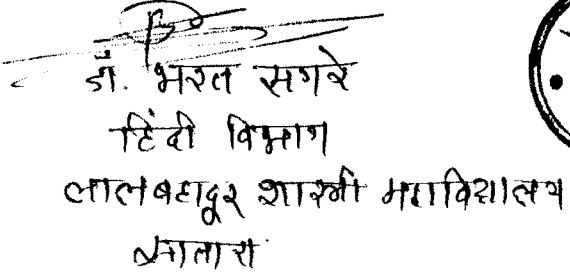 डॉ. भरत सगरे
हिंदी विभाग
लालबहादूर शास्त्री महाविद्यालय
सातारा